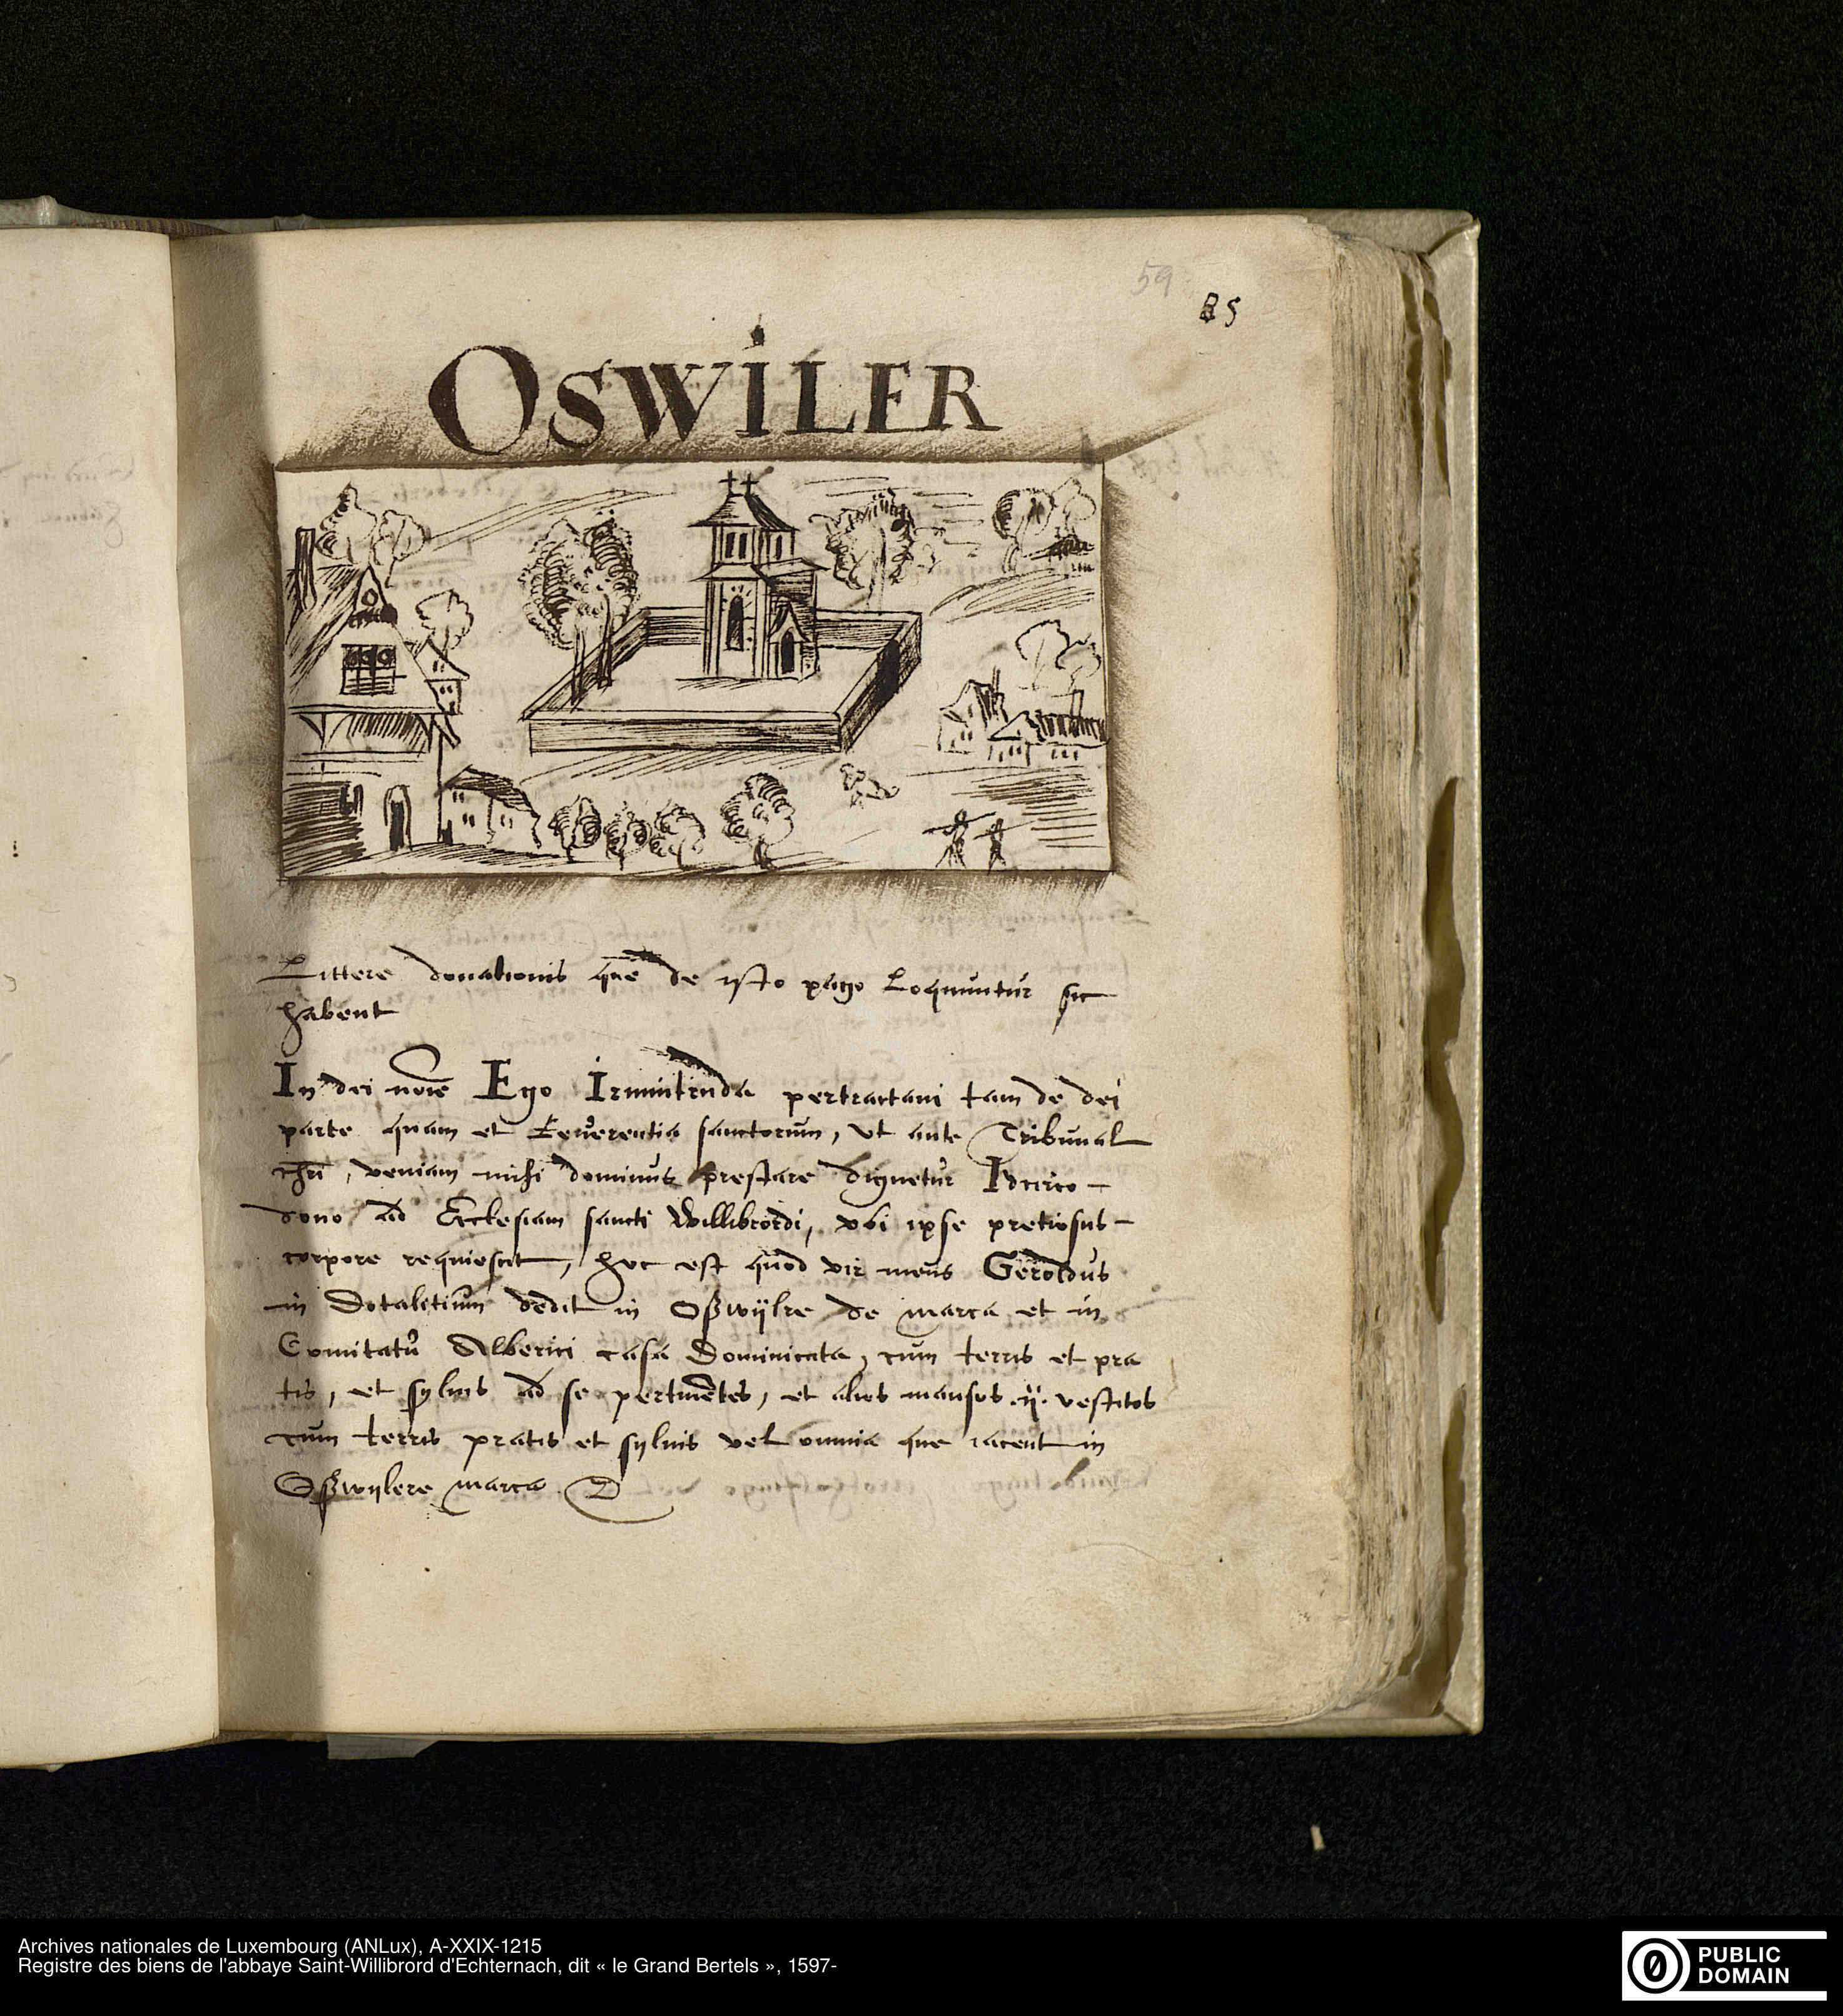 59
85
OSWiLER
Littere donationis que de isto pago Loquuntur sic
habent
In dei noie Ego Irmintruda pertractavi tam de dei
parte quam et Reverentia sanctorum, ut ante Tribunal
chri, veniam mihi dominus prestare dignetur Idcirco -
dono ad Ecclesiam sancti Willibrordi, vbi ipse pretiosus -
corpore requiescit, hoc est quod vir meus Geroldus
in Dotalitium dedit in Oßwijlre de marca et in
Comitatu Alberici casa Dominicata, cum terris et pra
tis, et sylvis ad se pertinetes, et alios mansos .ij. vestitos
cum terris pratis et sylvis vel omnia que iacent in
Oßwylere marca
Archives nationales de Luxembourg (ANLux), A-XXIX-1215
Registre des biens de l'abbaye Saint-Willibrord d'Echternach, dit « le Grand Bertels », 1597-
PUBLIC
DOMAIN